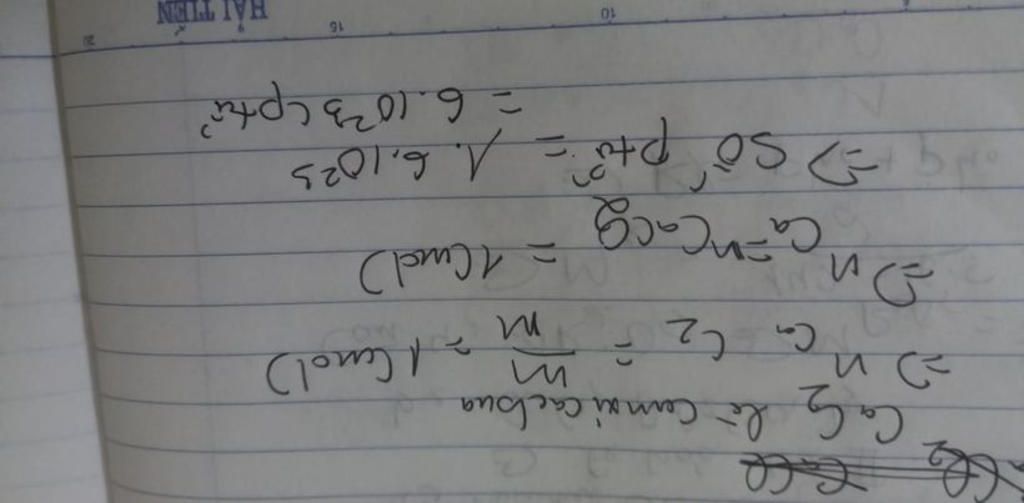 CaC2 là canxi cacbua
=> n CaC2 = m/M = 1 (mol)
=> n Ca = n CaC2 = 1 (mol)
=> Số ptử = 1. 6.10^23
= 6.10^23 (ptử
10
15
HẢI TIẾN